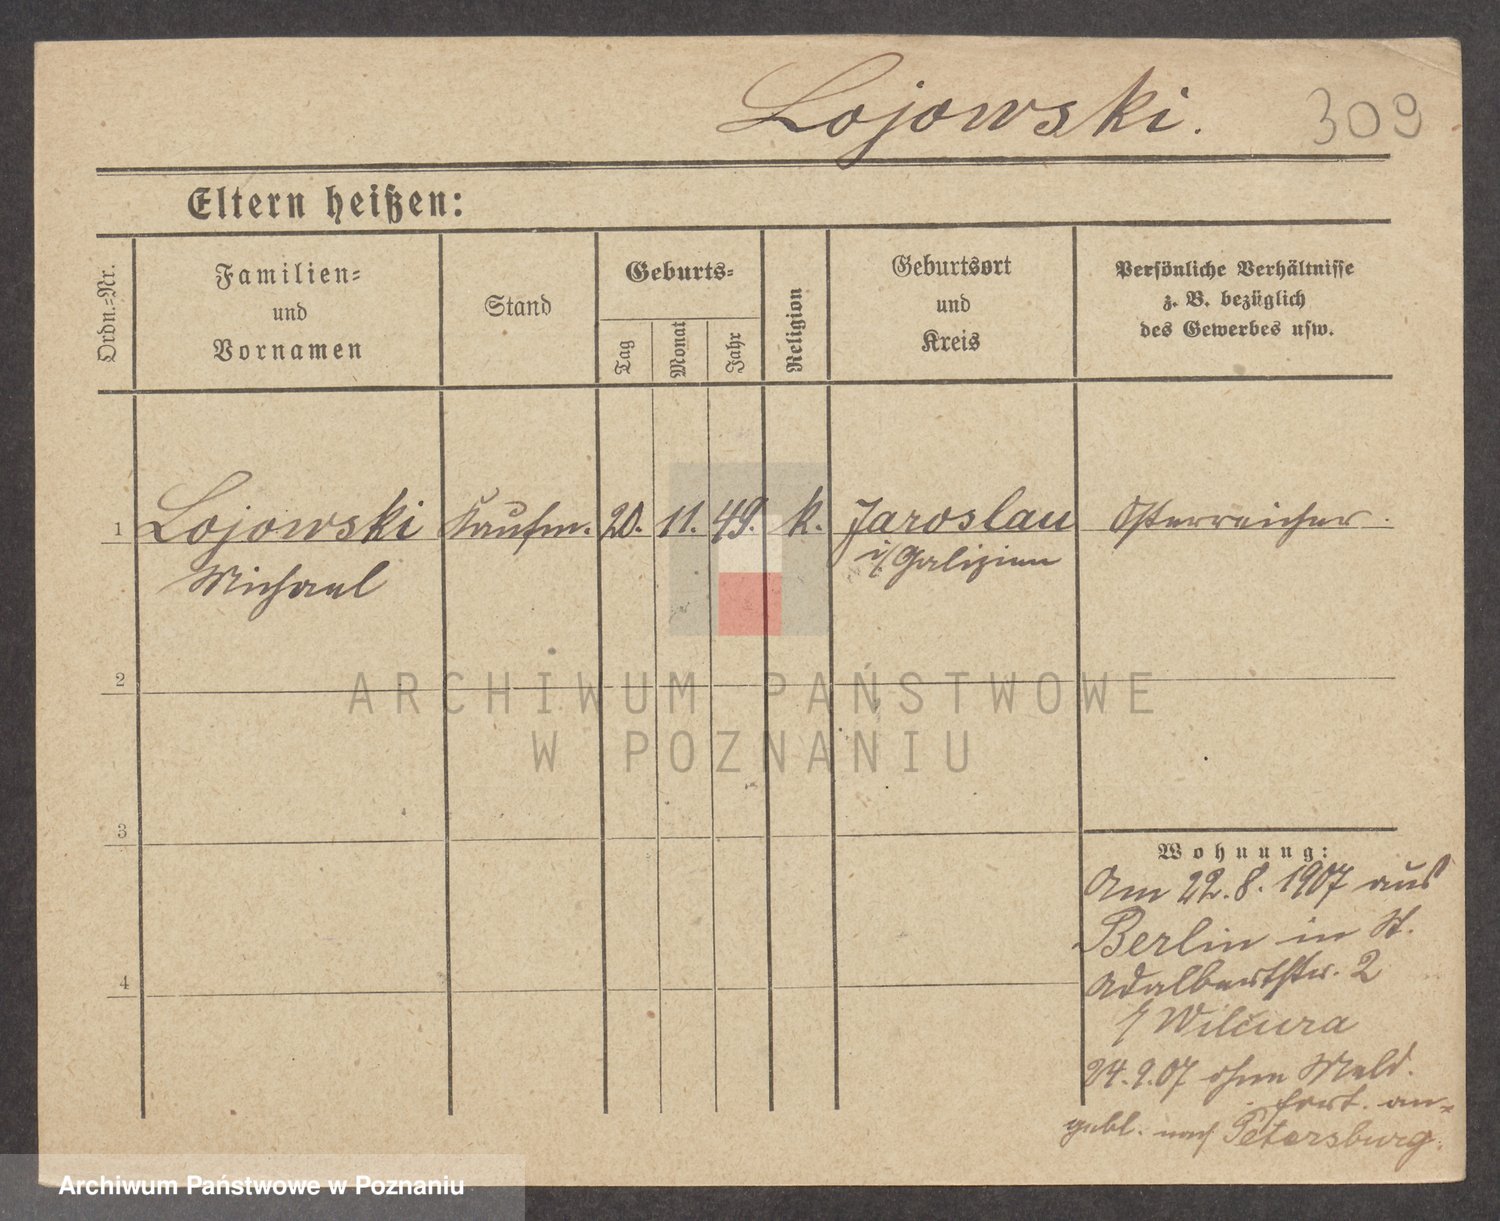 Lojowski. 309
Eltern heißen:
Ordn.=Nr.
Familien=
und
Vornamen
Stand
Geburts=
Tag
Monat
Jahr
Religion
Geburtsort
und
Kreis
Persönliche Verhältnisse
z. B. bezüglich
des Gewerbes usw.
1 Lojowski Kaufm. 20. 11. 49. k. Jaroslau Österreicher.
Michael i/Galizien
2
ARCHIWUM PAŃSTWOWE
W POZNANIU
3
Wohnung:
Am 22.8.1907 aus
Berlin in St.
Adalbertstr. 2
4
b/ Wilćura
24.9.07 ohne Meld.
fort. an=
gebl. nach Petersburg.
Archiwum Państwowe w Poznaniu